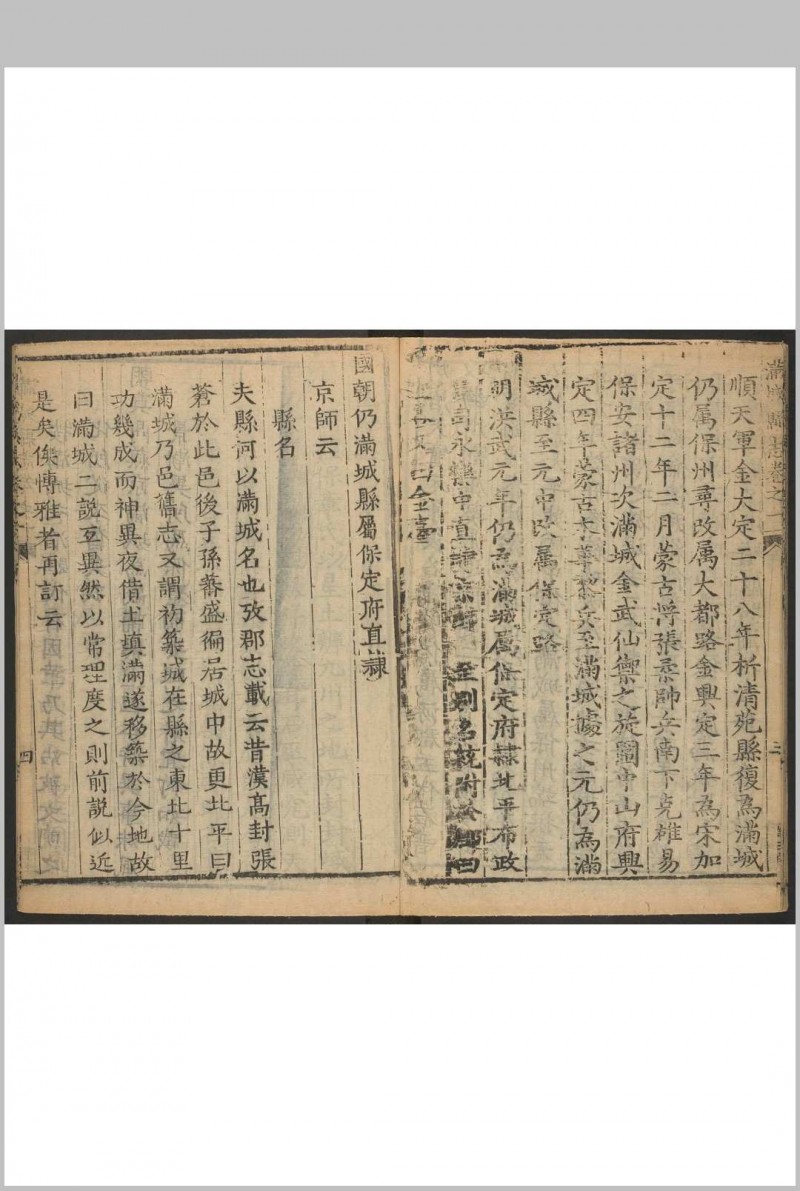 滿城縣志卷之一
三
順天軍金大定二十八年析清苑縣復為滿城
仍屬保州尋改属大都路金興定三年為宋加
定十二年二月蒙古將張柔帥兵南下克雄易
保安諸州次滿城金武仙禦之旋圍中山府興
定四年蒙古木華黎兵至滿城據之元仍為滿
城縣至元中改属保定路
明洪武元年仍為滿城屬保定府隸北平布政
司永樂中直隸京師 至別名統附於郡曰
曰金臺
國朝仍滿城縣屬保定府直隸
京師云
縣名
夫縣何以滿城名也攷郡志載云昔漢高封張
蒼於此邑後子孫蕃盛徧居城中故更北平曰
滿城乃邑舊志又謂初築城在縣之東北十里
功幾成而神異夜借土填滿遂移築於今地故
曰滿城二說互異然以常理度之則前說似近
是矣俟博雅者再訂云
四